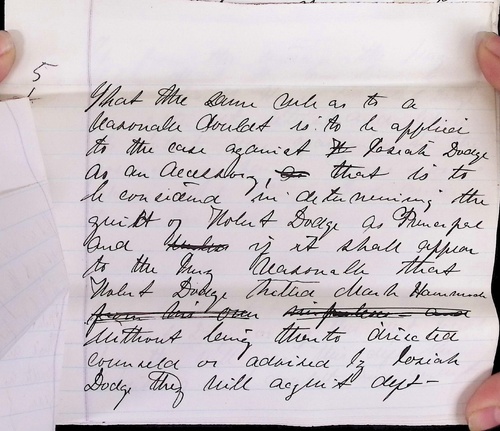 5
That the same rule as to a
reasonable doubt is to be applied
to the case against Josiah Dodge
as an accessory, that is to
be considered in determining the
guilt of Robert Dodge as Principal
and if it shall appear
to the Jury reasonable that
Robert Dodge killed Mark Hammock
from his own impulses and
without being thereto directed
counseld or advised by Josiah
Dodge they will acquit deft-